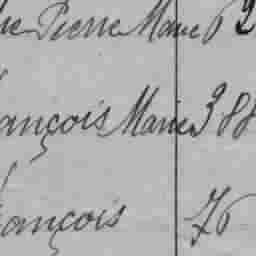 Pierre Marie 62
ançois Marie 388
ançois 76